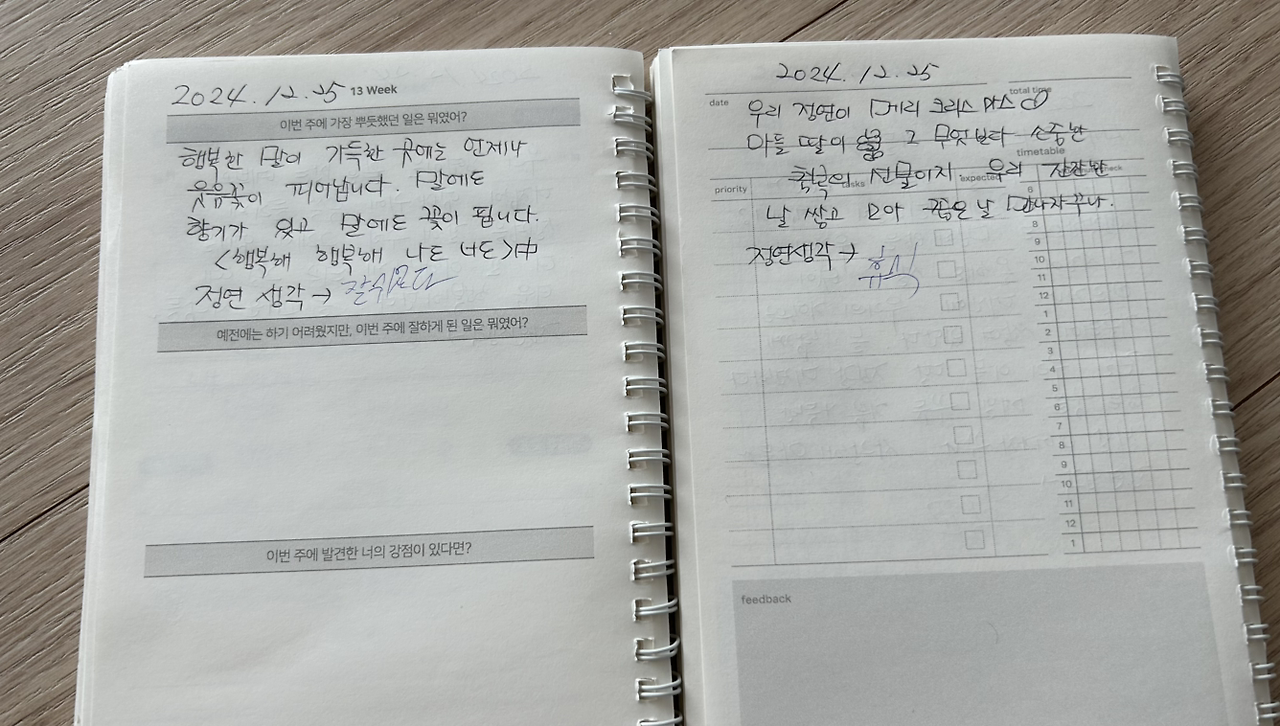 2024. 12. 25 13 Week
이번 주에 가장 뿌듯했던 일은 뭐였어?
행복한 말이 가득한 곳에는 언제나
웃음꽃이 피어납니다. 말에도
향기가 있고 말에도 꽃이 핍니다.
<행복해 행복해 나도 너도>中
정연 생각 →
예전에는 하기 어려웠지만, 이번 주에 잘하게 된 일은 뭐였어?
이번 주에 발견한 너의 강점이 있다면?
2024. 12. 25
total time
date
우리 정연이 메리 크리스마스
아들 딸이 그 무엇보다 소중한
timetable
축복의 선물이지 우리
priority tasks expected check
날 쌓고 모아
6
8
정연생각 → 휴식
9
10
11
12
1
2
3
4
5
6
7
8
9
10
11
12
1
feedback